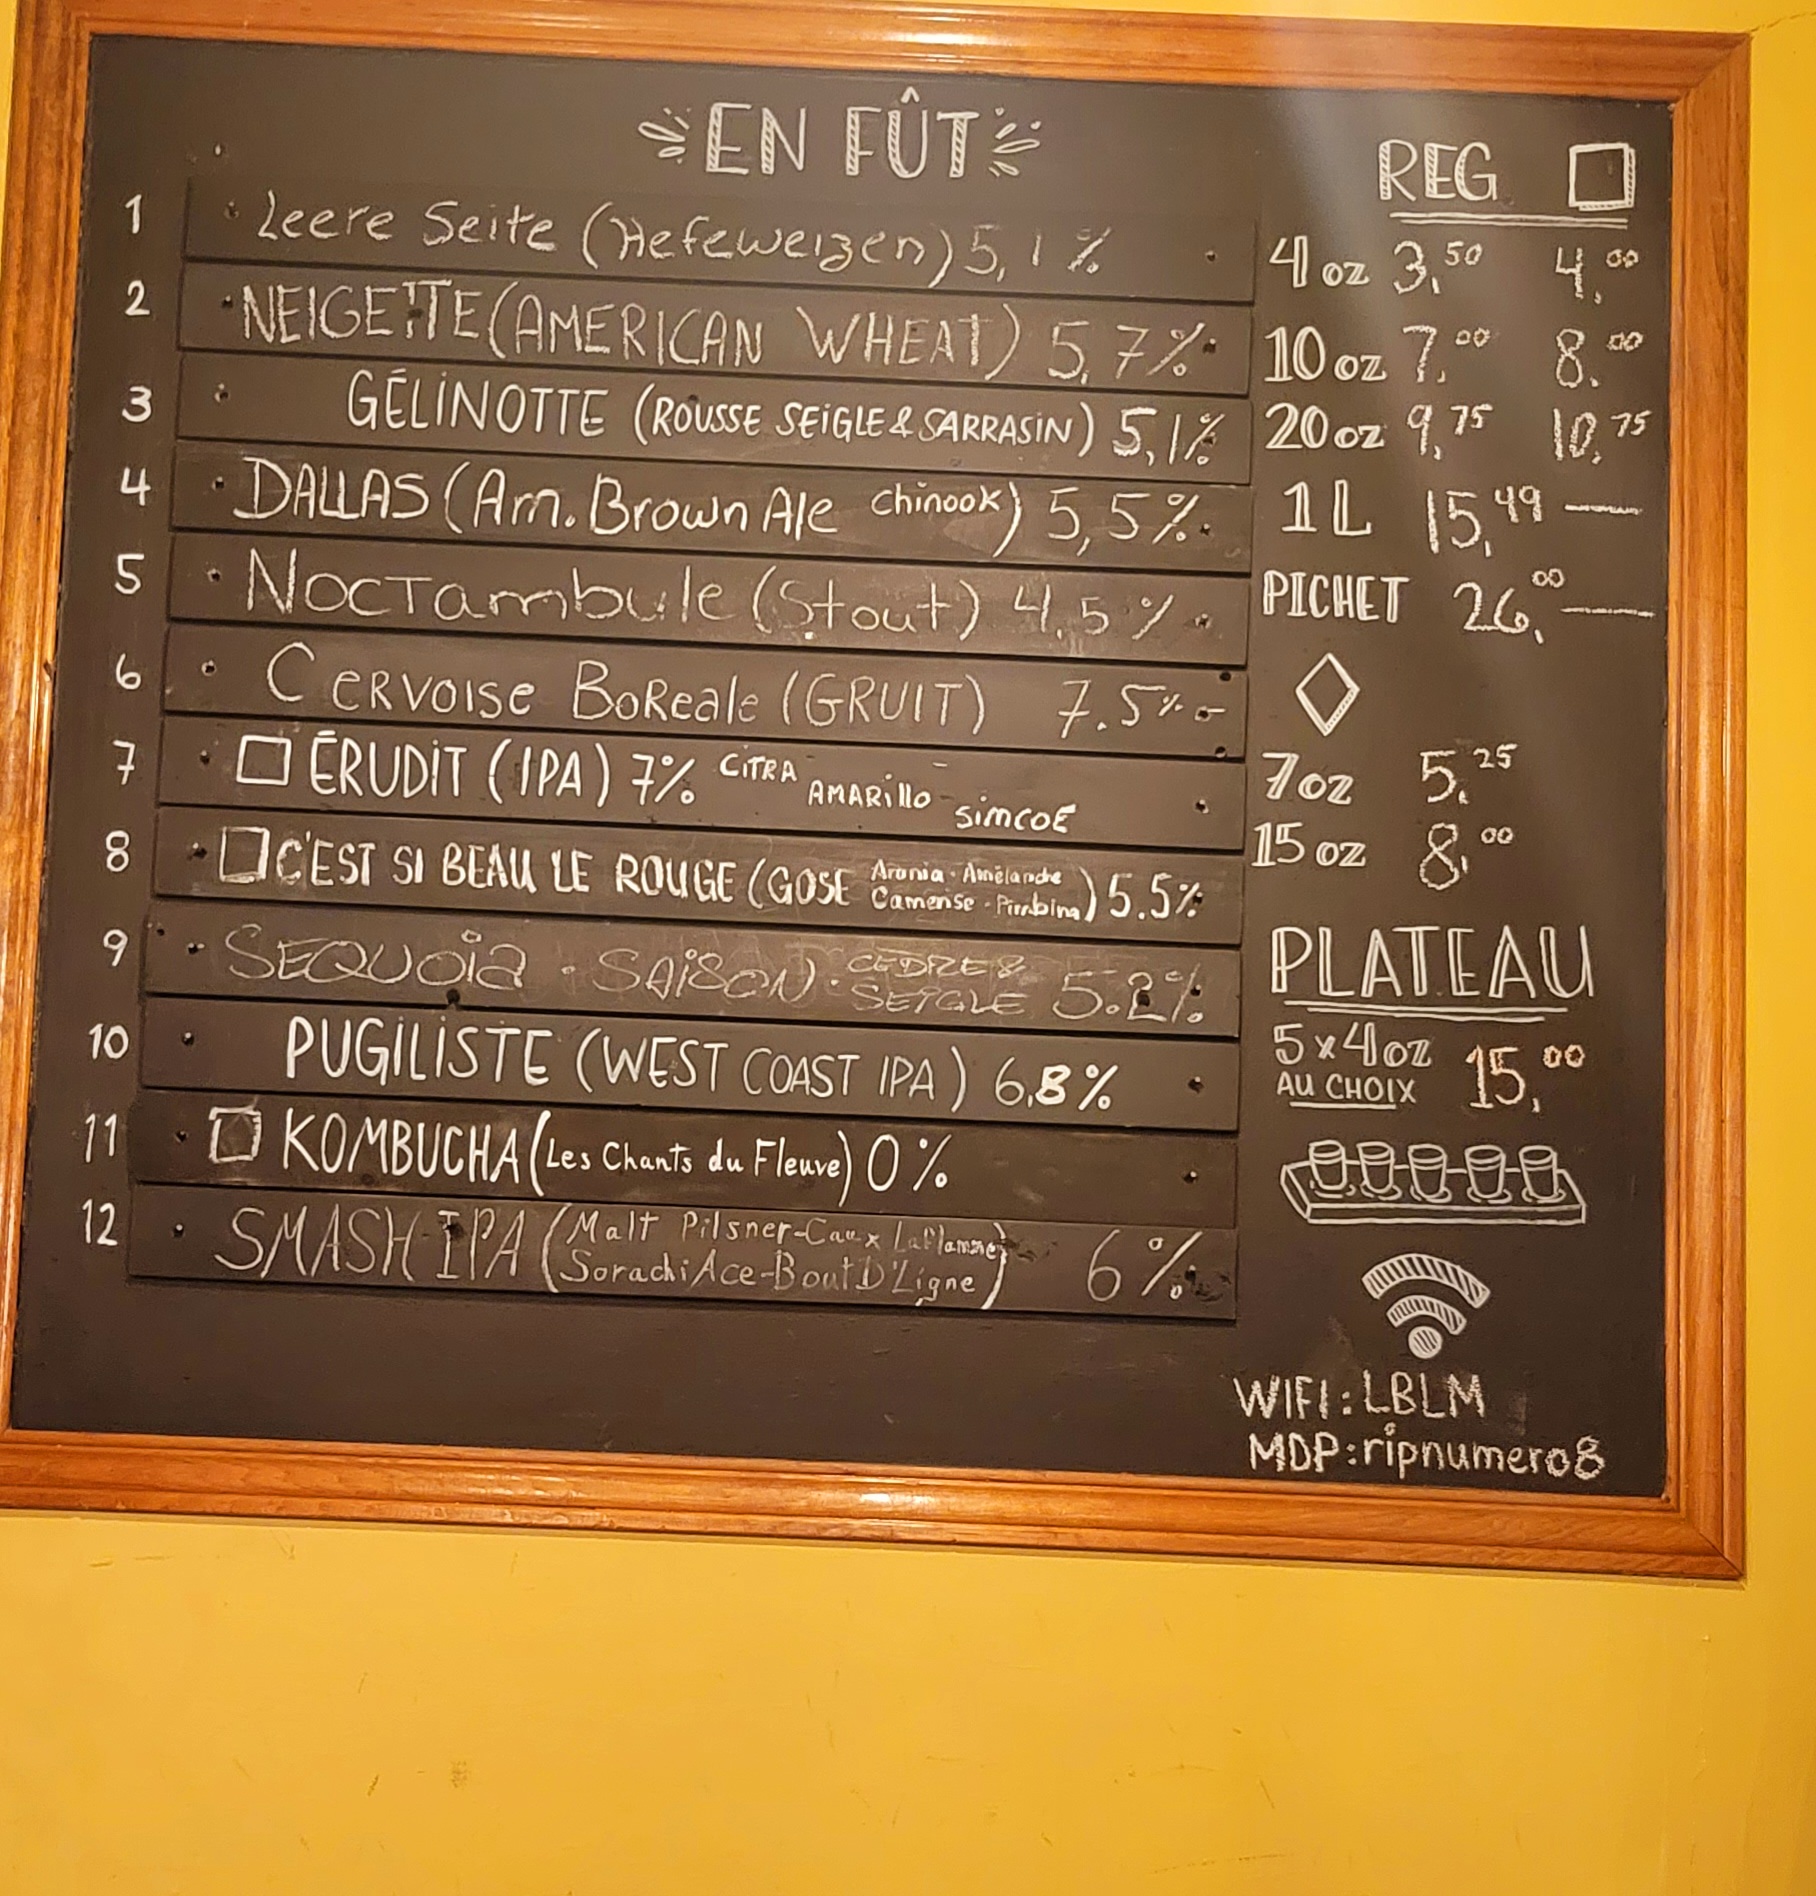 EN FÛT
1 Leere Seite (Hefeweizen) 5,1%
2 NEIGETTE (AMERICAN WHEAT) 5,7%
3 GÉLINOTTE (ROUSSE SEIGLE & SARRASIN) 5,1%
4 DALLAS (Am. Brown Ale chinook) 5,5%
5 Noctambule (Stout) 4,5%
6 CERVOISE BoReale (GRUIT) 7.5%
7 ÉRUDIT (IPA) 7% CITRA - AMARillo - SimcoE
8 C'EST SI BEAU LE ROUGE (GOSE Aronia - Amélanche Camerise - Pimbina) 5.5%
9 SEQUOia - SAiSON - CEDRE & SEIGLE 5.2%
10 PUGILISTE (WEST COAST IPA) 6,8%
11 KOMBUCHA (Les Chants du Fleuve) 0%
12 SMASH IPA (Malt Pilsner-Caux Laflamme SorachiAce-Bout D'Ligne) 6%
REG
4 oz 3,50 4,00
10 oz 7,00 8,00
20 oz 9,75 10,75
1 L 15,49
PICHET 26,00
7 oz 5,25
15 oz 8,00
PLATEAU
5 x 4 oz 15,00
AU CHOIX
WIFI: LBLM
MDP: ripnumero8